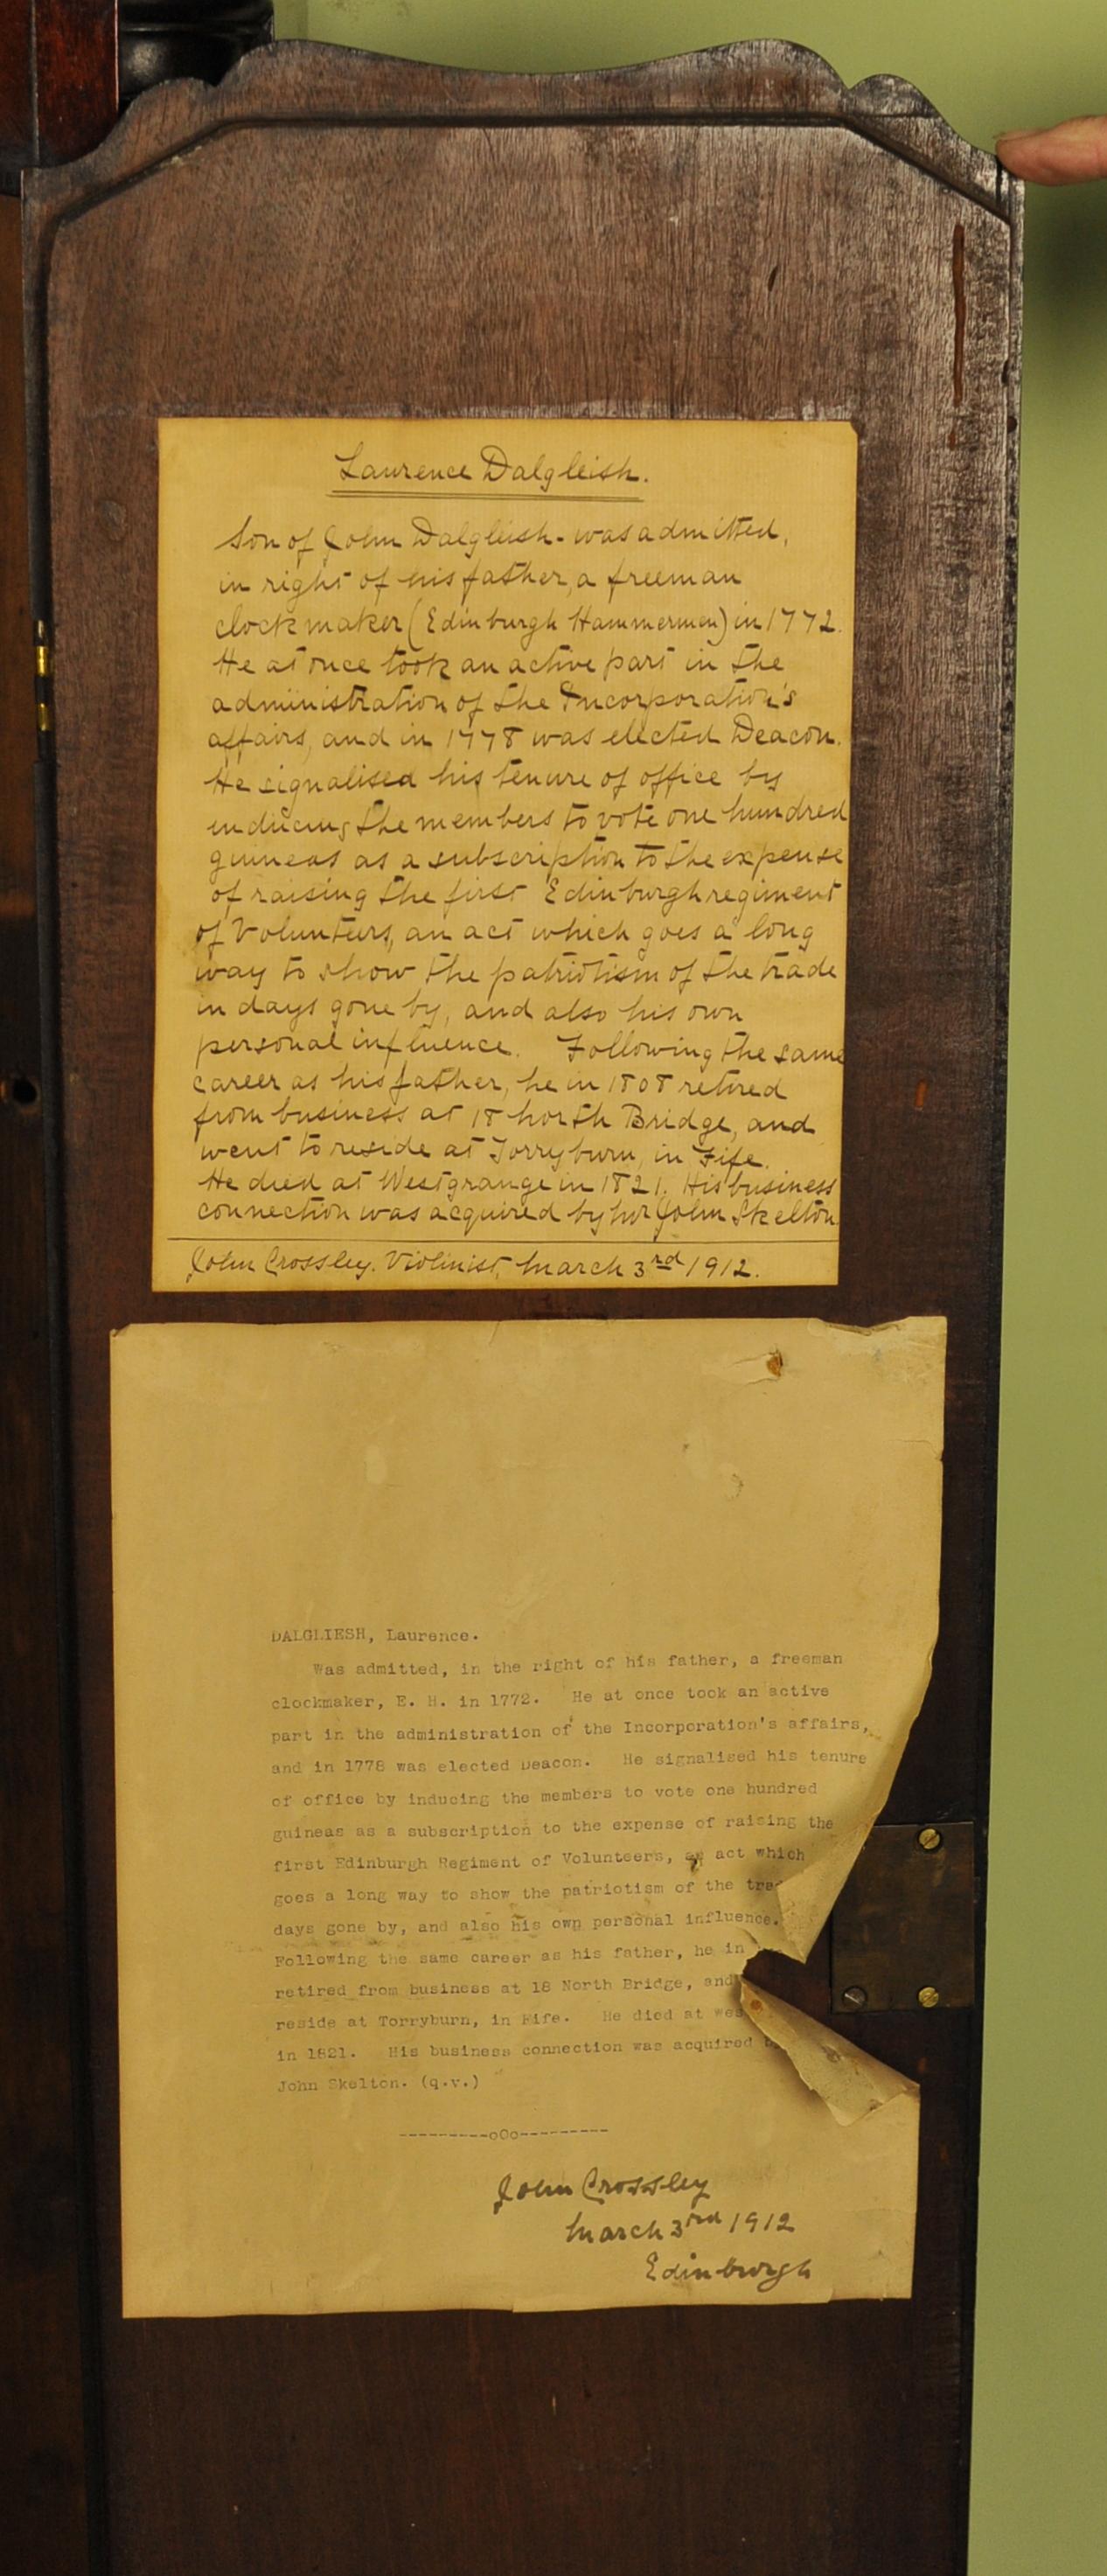 Laurence Dalgleish.
Son of John Dalgleish - was admitted,
in right of his father, a freeman
clockmaker (Edinburgh Hammermen) in 1772.
He at once took an active part in the
administration of the Incorporation's
affairs, and in 1778 was elected Deacon.
He signalised his tenure of office by
inducing the members to vote one hundred
guineas as a subscription to the expense
of raising the first Edinburgh regiment
of Volunteers, an act which goes a long
way to show the patriotism of the trade
in days gone by, and also his own
personal influence. Following the same
career as his father, he in 1808 retired
from business at 18 North Bridge, and
went to reside at Torryburn, in Fife.
He died at Westgrange in 1821. His business
connection was acquired by Mr John Skelton.
John Crossley. Violinist, March 3rd 1912.
DALGLIESH, Laurence.
Was admitted, in the right of his father, a freeman
clockmaker, E. H. in 1772. He at once took an active
part in the administration of the Incorporation's affairs,
and in 1778 was elected Deacon. He signalised his tenure
of office by inducing the members to vote one hundred
guineas as a subscription to the expense of raising the
first Edinburgh Regiment of Volunteers, an act which
goes a long way to show the patriotism of the
days gone by, and also his own personal influence.
Following the same career as his father, he in
retired from business at 18 North Bridge, and
reside at Torryburn, in Fife. He died at
in 1821. His business connection was acquired
John Skelton. (q.v.)
---------oOo---------
John Crossley
March 3rd 1912
Edinburgh